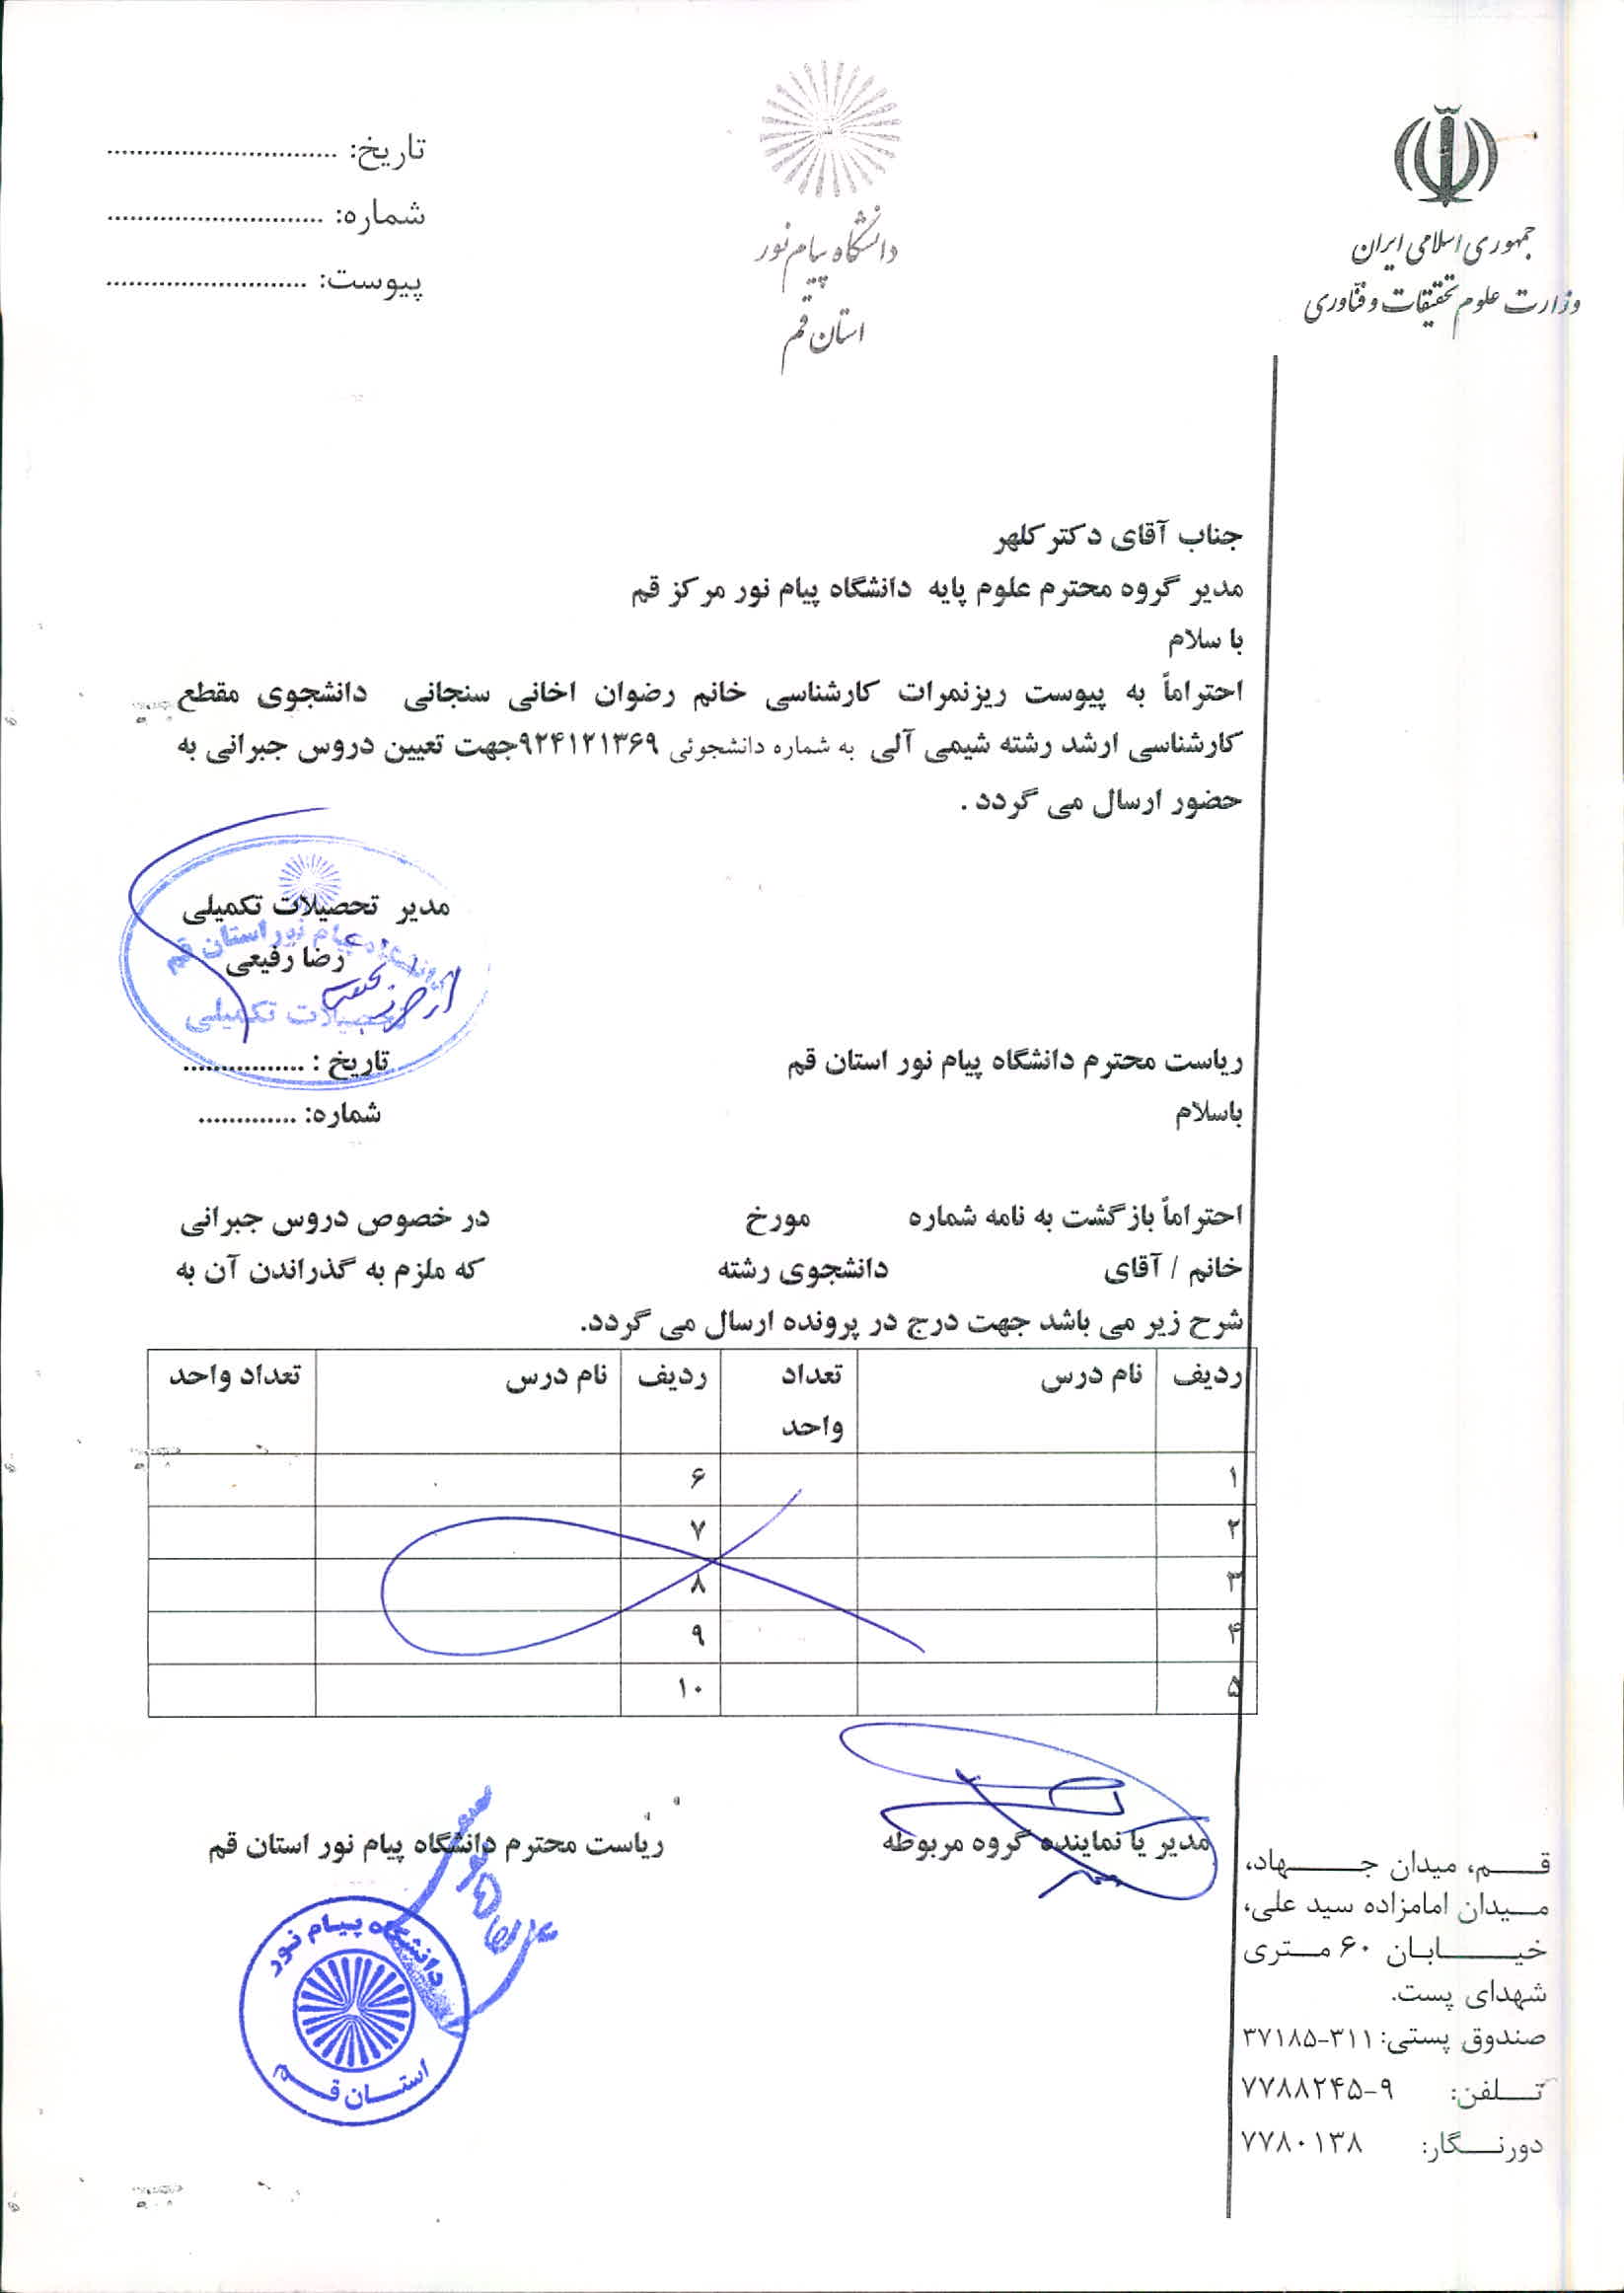 جمهوری اسلامی ایران
وزارت علوم تحقیقات و فناوری
دانشگاه پیام نور
استان قم
تاریخ: ..............................
شماره: ............................
پیوست: ..........................
جناب آقای دکتر کلهر
مدیر گروه محترم علوم پایه دانشگاه پیام نور مرکز قم
با سلام
احتراماً به پیوست ریزنمرات کارشناسی خانم رضوان اخانی سنجانی دانشجوی مقطع
کارشناسی ارشد رشته شیمی آلی به شماره دانشجوئی ۹۲۴۱۲۱۳۶۹جهت تعیین دروس جبرانی به
حضور ارسال می گردد .
مدیر تحصیلات تکمیلی
رضا رفیعی
دانشگاه پیام نور استان قم
تحصیلات تکمیلی
ریاست محترم دانشگاه پیام نور استان قم
تاریخ : ................
باسلام
شماره: .............
احتراماً بازگشت به نامه شماره مورخ در خصوص دروس جبرانی
خانم / آقای دانشجوی رشته که ملزم به گذراندن آن به
شرح زیر می باشد جهت درج در پرونده ارسال می گردد.
ردیف نام درس تعداد واحد ردیف نام درس تعداد واحد
۱ ۶
۲ ۷
۳ ۸
۴ ۹
۵ ۱۰
مدیر یا نماینده گروه مربوطه
ریاست محترم دانشگاه پیام نور استان قم
دانشگاه پیام نور
استان قم
قم، میدان جهاد،
میدان امامزاده سید علی،
خیابان ۶۰ متری
شهدای پست.
صندوق پستی: ۳۱۱-۳۷۱۸۵
تلفن: ۹-۷۷۸۸۲۴۵
دورنگار: ۷۷۸۰۱۳۸